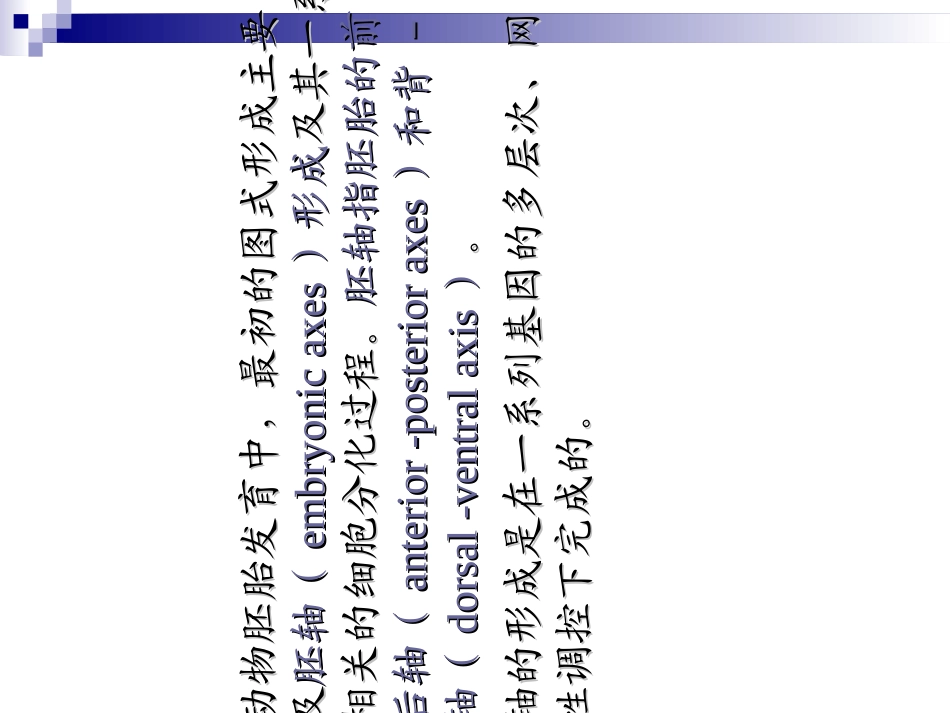 动物胚胎发育中，最初的图式形成主要
及胚轴（embryonic axes）形成及其一系
相关的细胞分化过程。胚轴指胚胎的前－
后轴（anterior -posterior axes）和背－
轴（dorsal -ventral axis）。
轴的形成是在一系列基因的多层次、网
性调控下完成的。